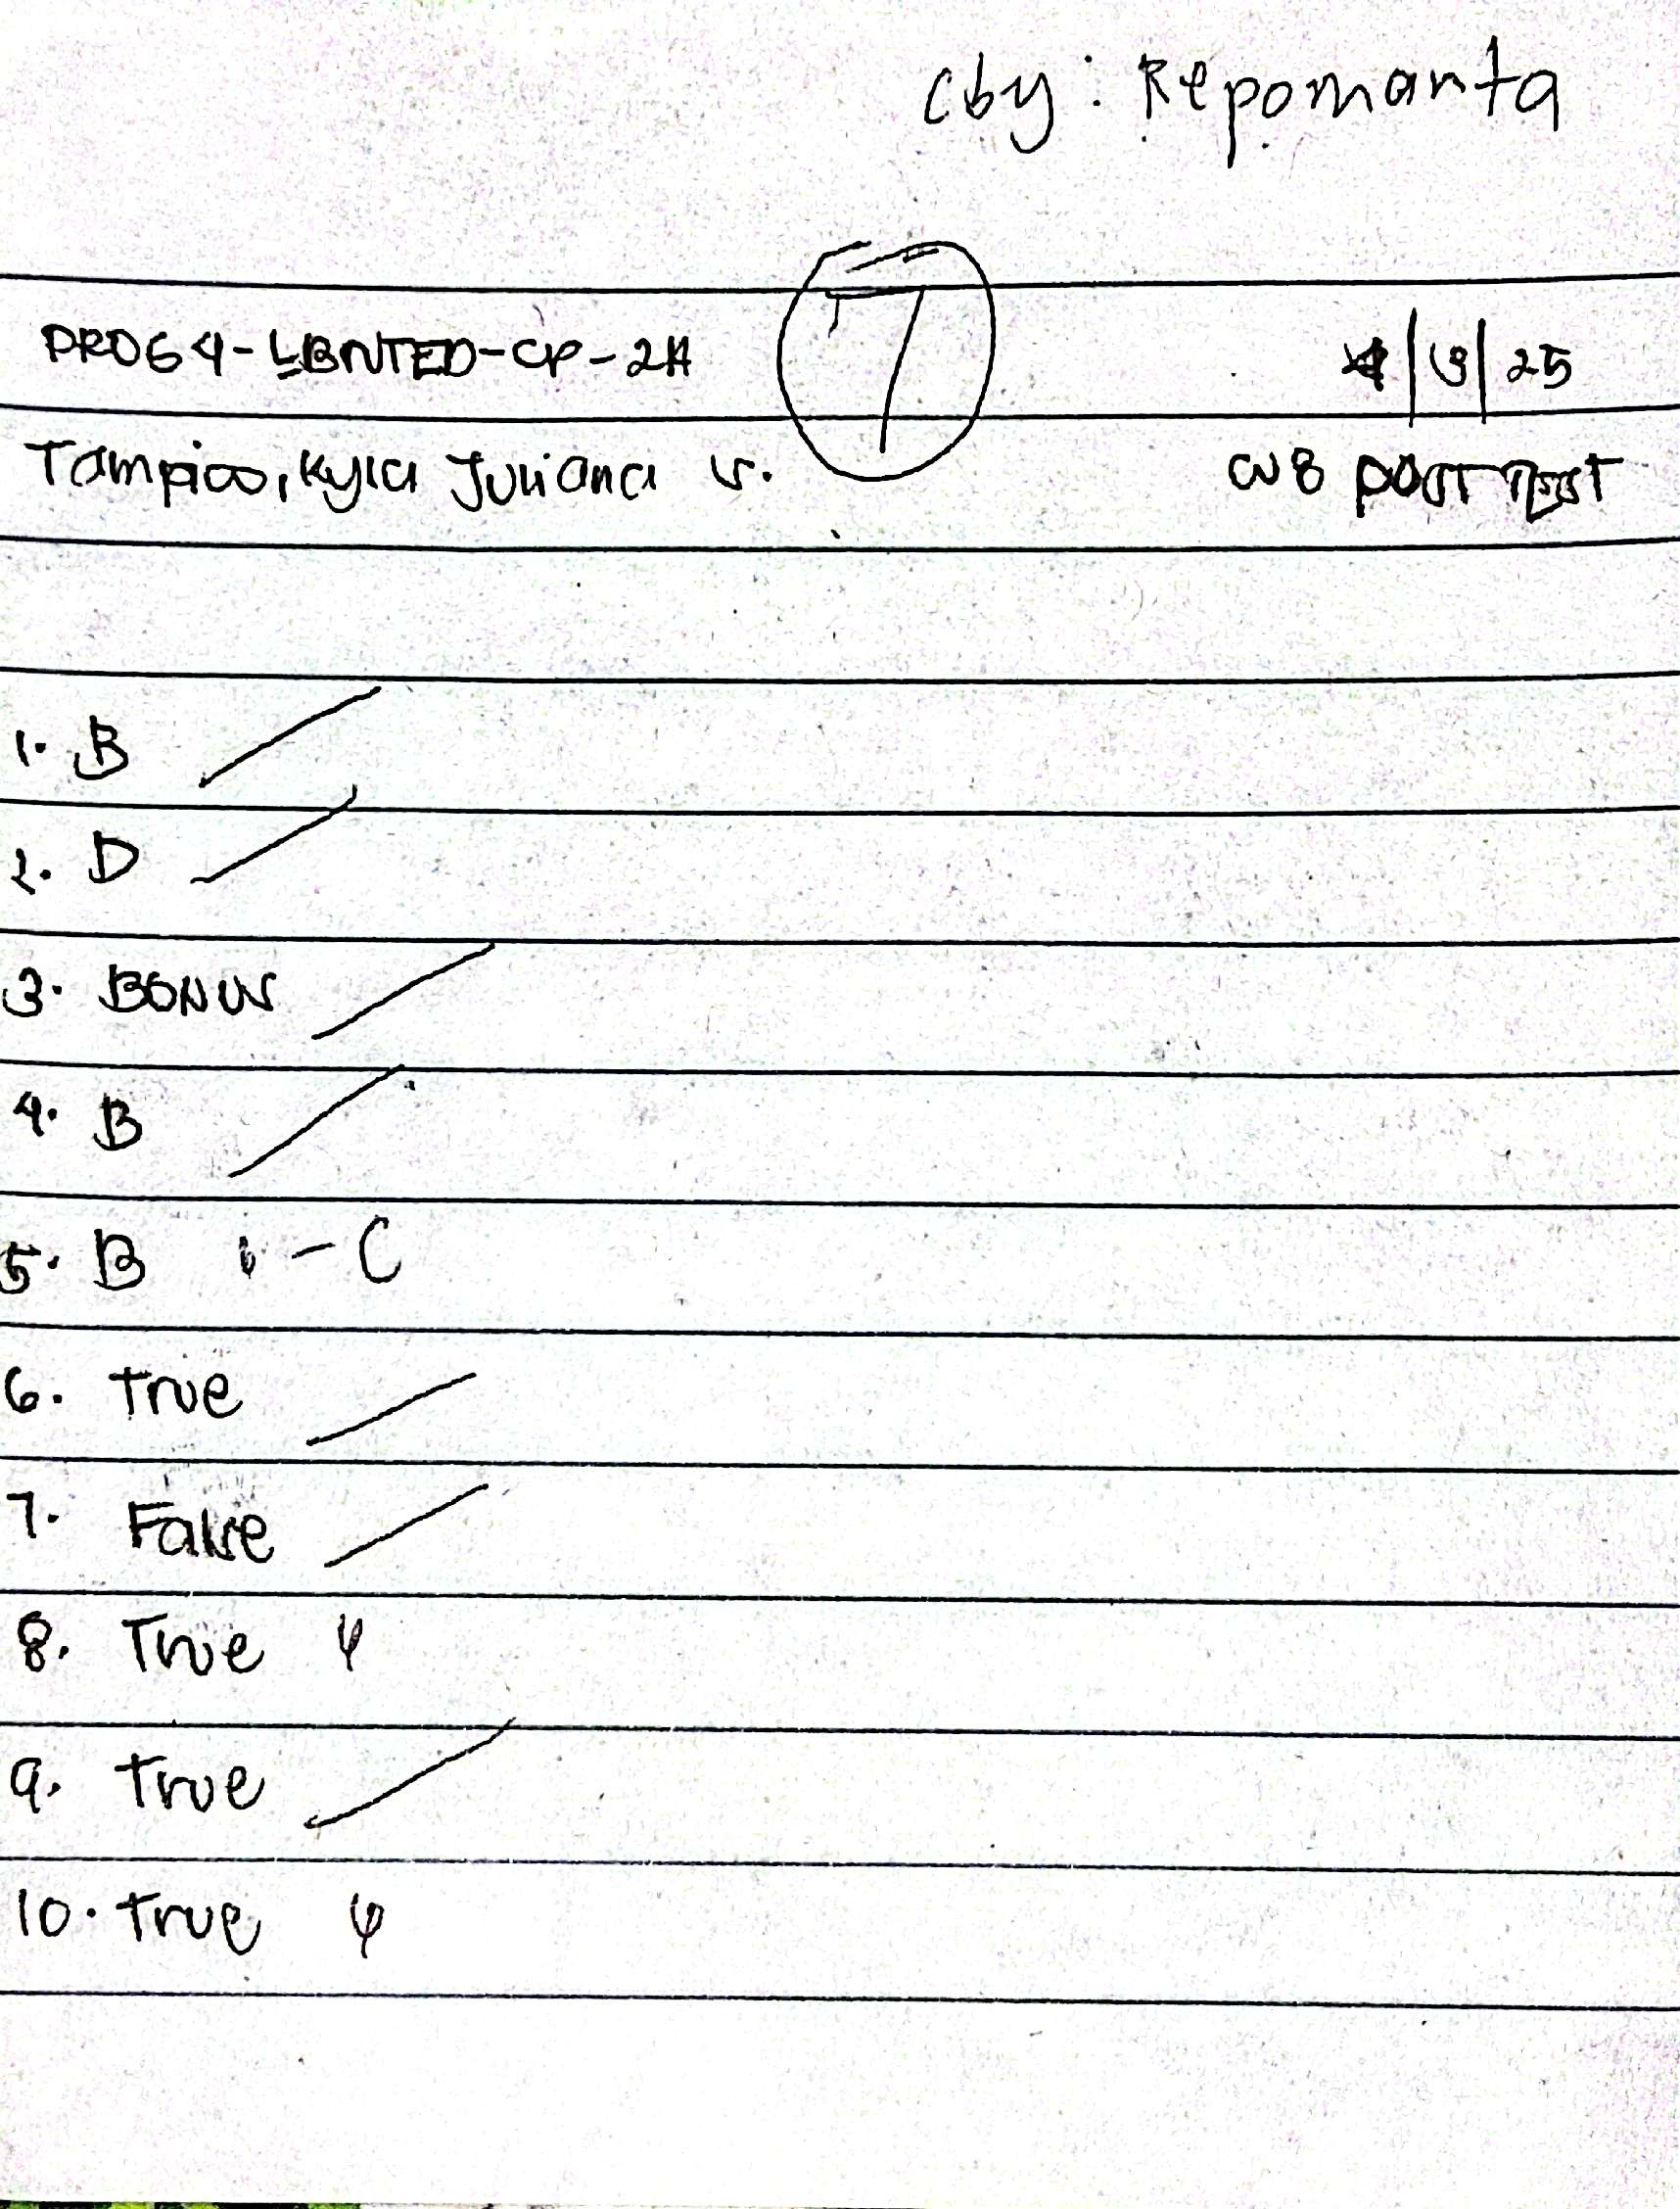 Cby: Repomanta
7
PROG4-LBNTED-CP-2A
4|3|25
Tampico, Kyla Juliana S.
W8 POST TEST
1. B
2. D
3. BONUS
4. B
5. B - C
6. True
7. False
8. True
9. True
10. True